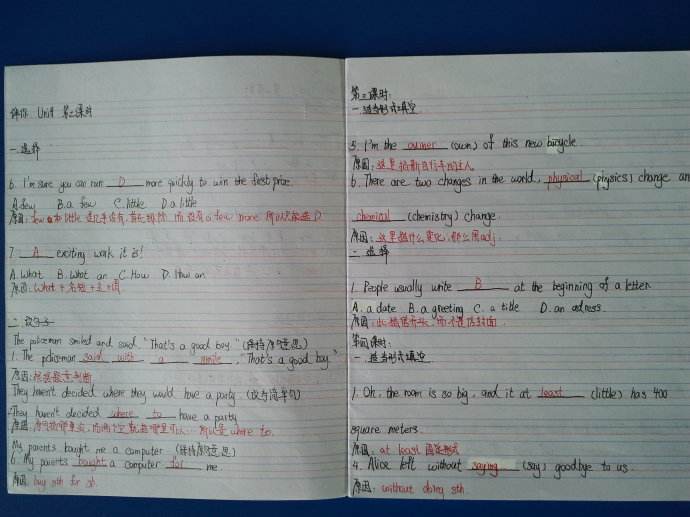 课作 Unit4 第二课时
一 选择
6. I'm sure you can run D more quickly to win the first prize
A. few B. a few C. little D. a little
7. A exciting work it is!
A. What B. What an C. How D. How an
原因: What + 名短 + 主 + 谓
二
The policeman smiled and said, "That's a good boy." (保持原句意思)
1. The policeman said with a smile, "That's a good boy."
原因: 根据题意判断
They haven't decided where they would have a party. (改为简单句)
They haven't decided where to have a party
所以是 where to.
My parents bought me a computer (保持原句意思)
6. My parents bought a computer for me.
原因: buy sth for sb.
第三课时:
一 适当形式填空
5. I'm the owner (own) of this new bicycle.
原因: 这里指新自行车的主人
6. There are two changes in the world, physical (physics) change an
chemical (chemistry) change.
原因: 这里指什么变化, 那么用adj.
二 选择
1. People usually write B at the beginning of a letter.
A. a date B. a greeting C. a title D. an adress.
原因: 此指信开头, 而不是信封面.
第四课时:
一 适当形式填空
1. Oh, the room is so big, and it at least (little) has 400
square meters.
原因: at least 固定形式
4. Alice left without saying (say) goodbye to us.
原因: without doing sth.